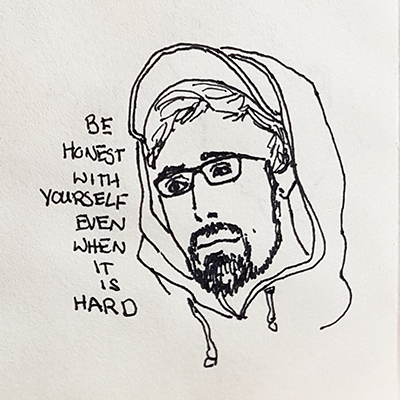 BE
HONEST
WITH
YOURSELF
EVEN
WHEN
IT
IS
HARD